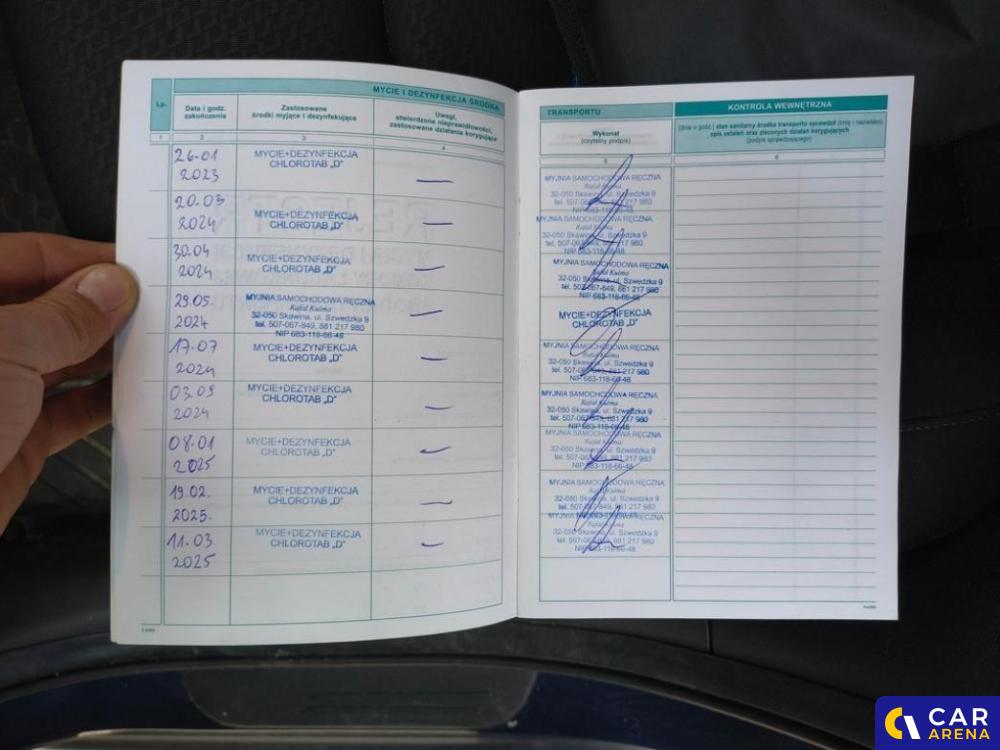 MYCIE I DEZYNFEKCJA ŚRODKA
Lp.
Data i godz.
zakończenia
Zastosowane
środki myjące i dezynfekujące
Uwagi,
stwierdzone nieprawidłowości,
zastosowane działania korygujące
1 2 3 4
26-01
2023
MYCIE+DEZYNFEKCJA
CHLOROTAB „D”
20.03
2024
MYCIE+DEZYNFEKCJA
CHLOROTAB „D”
30.04
2024
MYCIE+DEZYNFEKCJA
CHLOROTAB „D”
29.05.
2024
MYJNIA SAMOCHODOWA RĘCZNA
Rafał Kuśma
32-050 Skawina, ul. Szwedzka 9
tel. 507-067-849, 881 217 980
NIP 683-118-66-48
17.07
2024
MYCIE+DEZYNFEKCJA
CHLOROTAB „D”
03.09
2024
MYCIE+DEZYNFEKCJA
CHLOROTAB „D”
08.01
2025
MYCIE+DEZYNFEKCJA
CHLOROTAB „D”
19.02.
2025.
MYCIE+DEZYNFEKCJA
CHLOROTAB „D”
11.03
2025
MYCIE+DEZYNFEKCJA
CHLOROTAB „D”
TRANSPORTU
KONTROLA WEWNĘTRZNA
Wykonał
(czytelny podpis)
(dnia o godz.) stan sanitarny środka transportu sprawdził (imię i nazwisko)
opis ustaleń oraz zleconych działań korygujących
(podpis sprawdzającego)
5 6
MYJNIA SAMOCHODOWA RĘCZNA
Rafał Kuśma
32-050 Skawina, ul. Szwedzka 9
tel. 507-067-849, 881 217 980
NIP 683-118-66-48
MYJNIA SAMOCHODOWA RĘCZNA
32-050 Skawina, ul. Szwedzka 9
tel. 507-067-849, 881 217 980
NIP 683-118-66-48
MYJNIA SAMOCHODOWA RĘCZNA
Rafał Kuśma
32-050 Skawina, ul. Szwedzka 9
tel. 507-067-849, 881 217 980
NIP 683-118-66-48
MYCIE+DEZYNFEKCJA
CHLOROTAB „D”
MYJNIA SAMOCHODOWA RĘCZNA
Rafał Kuśma
32-050 Skawina, ul. Szwedzka 9
tel. 507-067-849, 881 217 980
NIP 683-118-66-48
MYJNIA SAMOCHODOWA RĘCZNA
Rafał Kuśma
32-050 Skawina, ul. Szwedzka 9
tel. 507-067-849, 881 217 980
MYJNIA SAMOCHODOWA RĘCZNA
Rafał Kuśma
32-050 Skawina, ul. Szwedzka 9
tel. 507-067-849, 881 217 980
NIP 683-118-66-48
MYJNIA SAMOCHODOWA RĘCZNA
Rafał Kuśma
32-050 Skawina, ul. Szwedzka 9
tel. 507-067-849, 881 217 980
MYJNIA SAMOCHODOWA RĘCZNA
Rafał Kuśma
32-050 Skawina, ul. Szwedzka 9
tel. 507-067-849, 881 217 980
NIP 683-118-66-48
CAR
ARENA